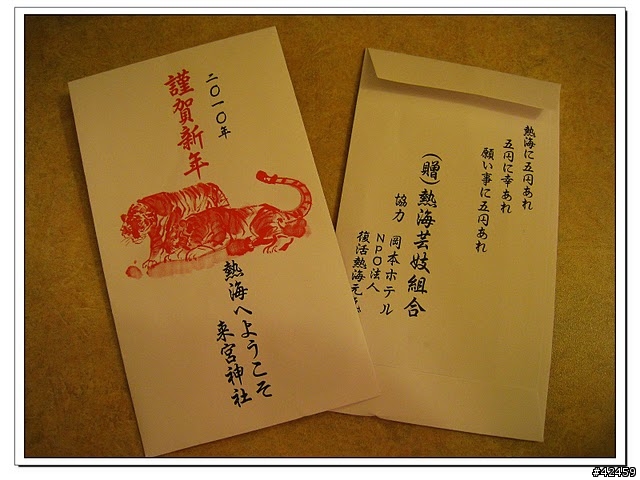 二〇一〇年
謹賀新年
熱海へようこそ
来宮神社
熱海に五円あれ
五円に幸あれ
願い事に五円あれ
(贈)熱海芸妓組合
協力 岡本ホテル
NPO法人
復活熱海元
#42459